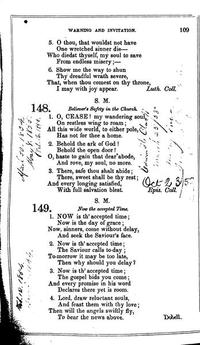 WARNING AND INVITATION. 109
5. O thou, that wouldst not have
One wretched sinner die—
Who diedst thyself, my soul to save
From endless misery;—
6. Show me the way to shun
Thy dreadful wrath severe,
That, when thou comest on thy throne,
I may with joy appear. Luth. Coll.
148. S. M.
Believer's Safety in the Church.
1. O, CEASE! my wandering soul,
On restless wing to roam;
All this wide world, to either pole,
Has not for thee a home.
2. Behold the ark of God!
Behold the open door!
O, haste to gain that dear abode,
And rove, my soul, no more.
3. There, safe thou shalt abide;
There, sweet shall be thy rest;
And every longing satisfied,
With full salvation blest. Epis. Coll.
Oct 2
149. S. M.
Now the accepted Time.
1. NOW is th' accepted time;
Now is the day of grace;
Now, sinners, come without delay,
And seek the Saviour's face.
2. Now is th' accepted time;
The Saviour calls to-day;
To-morrow it may be too late,
Then why should you delay?
3. Now is th' accepted time;
The gospel bids you come;
And every promise in his word
Declares there yet is room.
4. Lord, draw reluctant souls,
And feast them with thy love;
Then will the angels swiftly fly,
To bear the news above. Dobell.